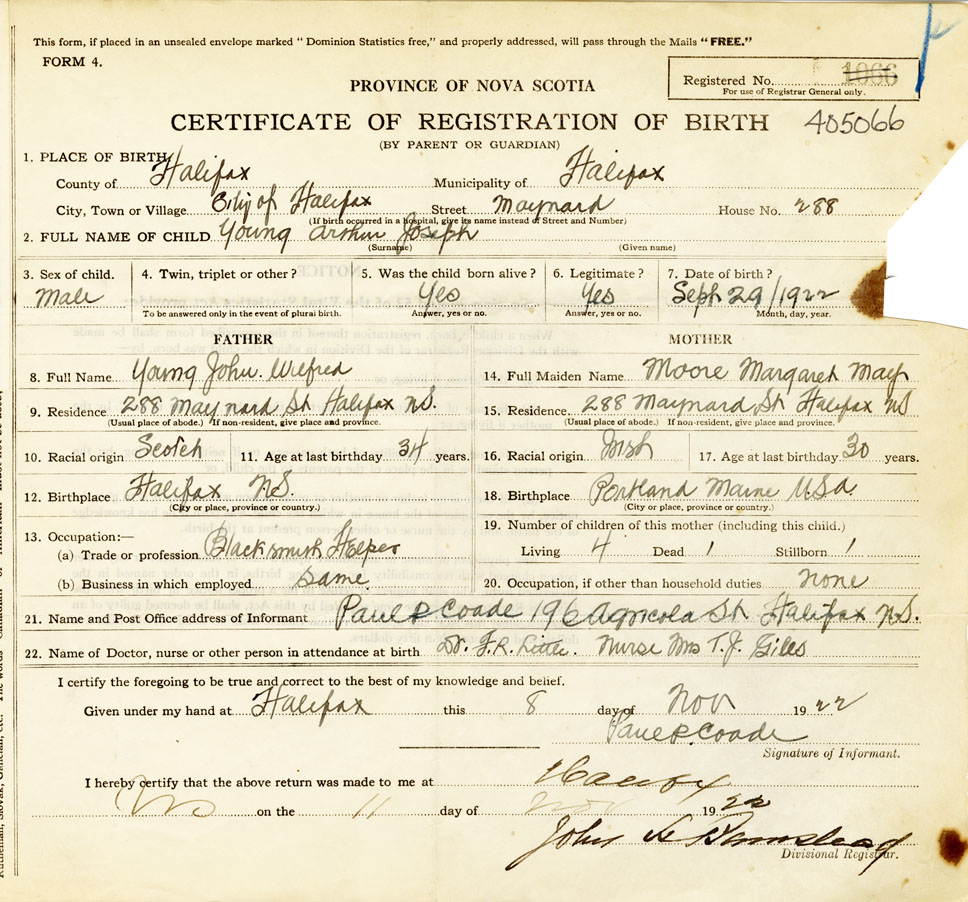 This form, if placed in an unsealed envelope marked "Dominion Statistics free," and properly addressed, will pass through the Mails "FREE."
FORM 4.
PROVINCE OF NOVA SCOTIA
Registered No. 1066
For use of Registrar General only.
CERTIFICATE OF REGISTRATION OF BIRTH 405066
(BY PARENT OR GUARDIAN)
1. PLACE OF BIRTH
County of Halifax Municipality of Halifax
City, Town or Village City of Halifax Street Maynard House No. 288
(If birth occurred in a hospital, give its name instead of Street and Number)
2. FULL NAME OF CHILD Young Arthur Joseph
(Surname) (Given name)
3. Sex of child. 4. Twin, triplet or other? 5. Was the child born alive? 6. Legitimate? 7. Date of birth?
Male Yes Yes Sept 29/1922
To be answered only in the event of plural birth. Answer, yes or no. Answer, yes or no. Month, day, year.
FATHER MOTHER
8. Full Name Young John. Wilfred 14. Full Maiden Name Moore Margaret May
9. Residence 288 Maynard St Halifax NS. 15. Residence 288 Maynard St Halifax NS
(Usual place of abode.) If non-resident, give place and province. (Usual place of abode.) If non-resident, give place and province.
10. Racial origin Scotch 11. Age at last birthday 34 years. 16. Racial origin Irish 17. Age at last birthday 30 years.
12. Birthplace Halifax NS. 18. Birthplace Portland Maine U.S.A.
(City or place, province or country.) (City or place, province or country.)
13. Occupation:— 19. Number of children of this mother (including this child.)
(a) Trade or profession Blacksmith Helper Living 4 Dead 1 Stillborn 1
(b) Business in which employed same 20. Occupation, if other than household duties none
21. Name and Post Office address of Informant Paul P Coade 196 Agricola St Halifax N.S.
22. Name of Doctor, nurse or other person in attendance at birth Dr. F.R. Little. Nurse Mrs T.J. Giles
I certify the foregoing to be true and correct to the best of my knowledge and belief.
Given under my hand at Halifax this 8 day of Nov 1922
Paul P. Coade
Signature of Informant.
I hereby certify that the above return was made to me at Halifax
on the 11 day of Nov 1922
John
Divisional Registrar.